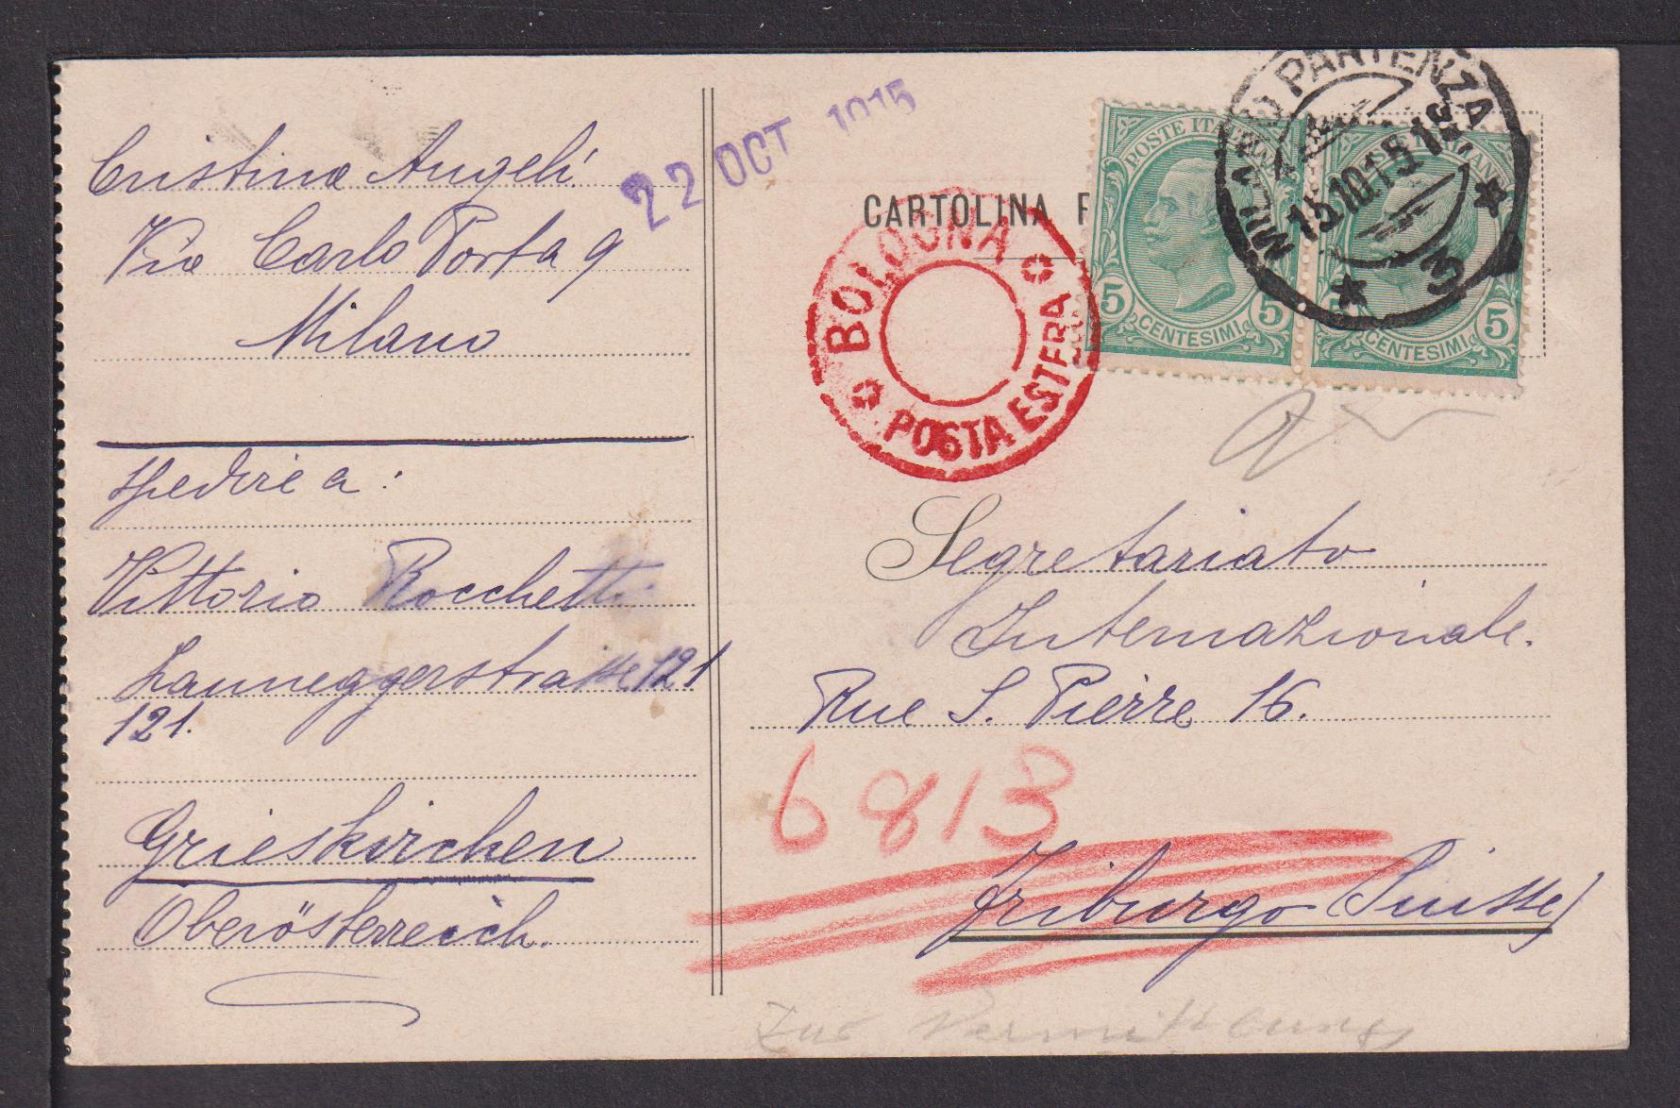 Cristina Angeli
Via Carlo Porta 9
Milano
spedire a:
Vittorio Rocchetti
Launeggerstrasse 121
121.
Grieskirchen
Oberösterreich.
22 OCT 1915
CARTOLINA P
BOLOGNA
POSTA ESTERA
POSTE ITALIANE
5 CENTESIMI 5
5 CENTESIMI 5
MILANO PARTENZA
15.10.15
Segretariato
Internazionale.
Rue S. Pierre 16.
6813
Friburgo (Suisse)
Zur Vermittlung